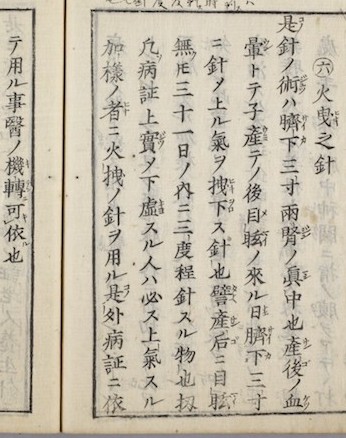 ㊅火曳之針
是針ノ術ハ臍下三寸兩腎ノ眞中也産後ノ血
暈トテ子産テノ後目眩ノ來ル日臍下三寸
ニ針メ上ル氣ヲ拽下ス針也譬産后ニ目眩
無𪜈三十一日ノ内ニ三度程針スル物也扨
凢病証上實メ下虛スル人ハ必ス上氣スル
加樣ノ者ニ火拽ノ針ヲ用ル是外病証ニ依
テ用ル事醫ノ機轉可依也